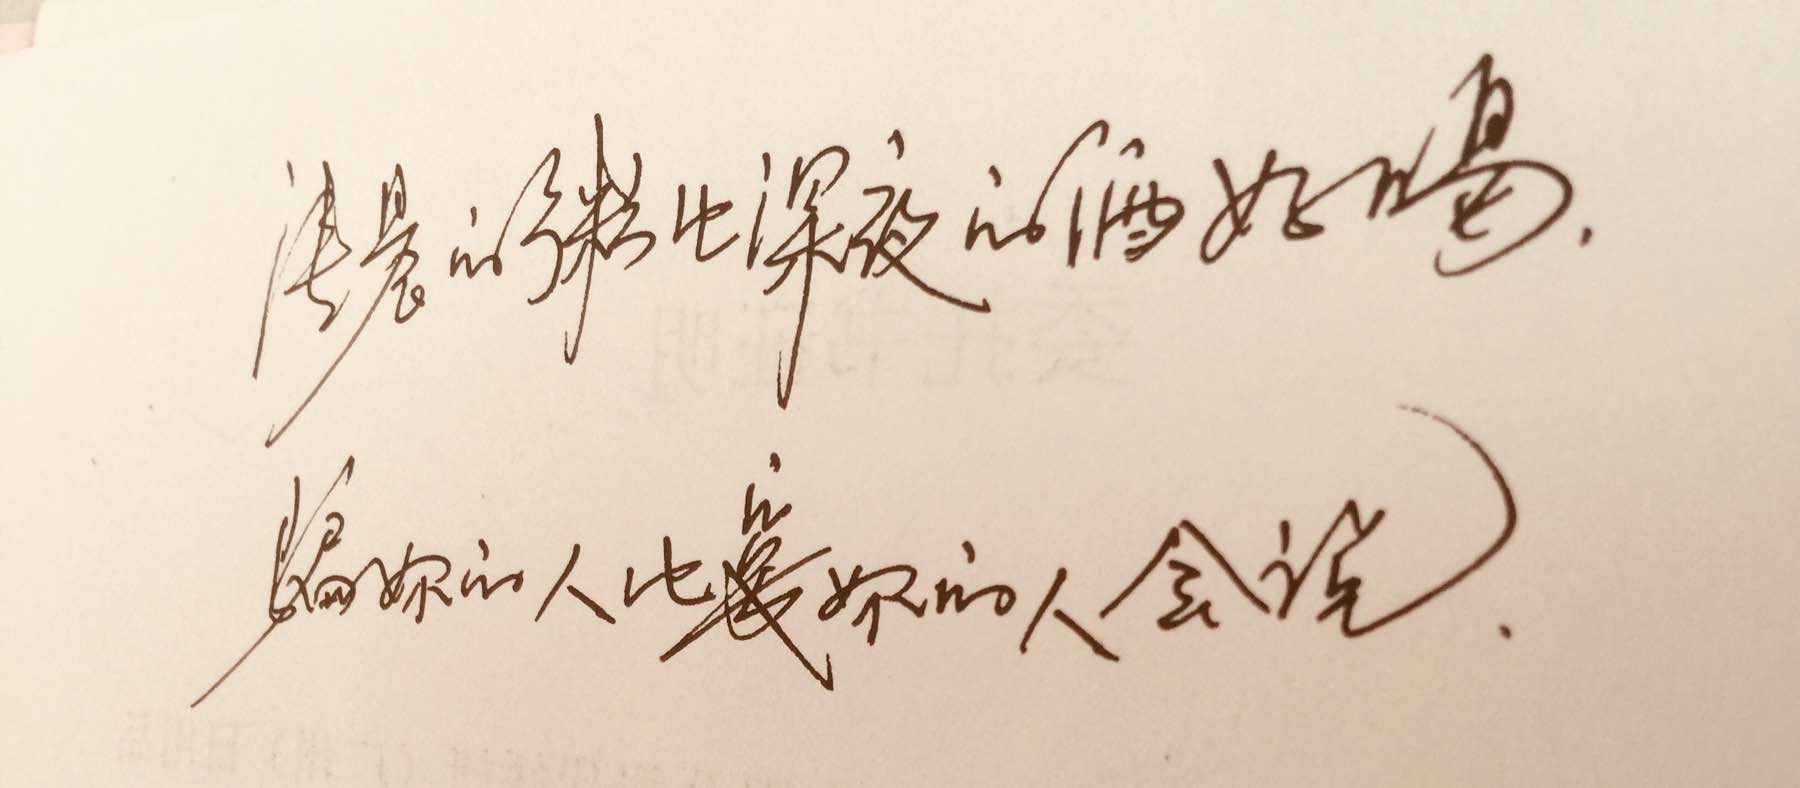 清晨的粥比深夜的酒好喝.
骗妳的人比爱妳的人会说.